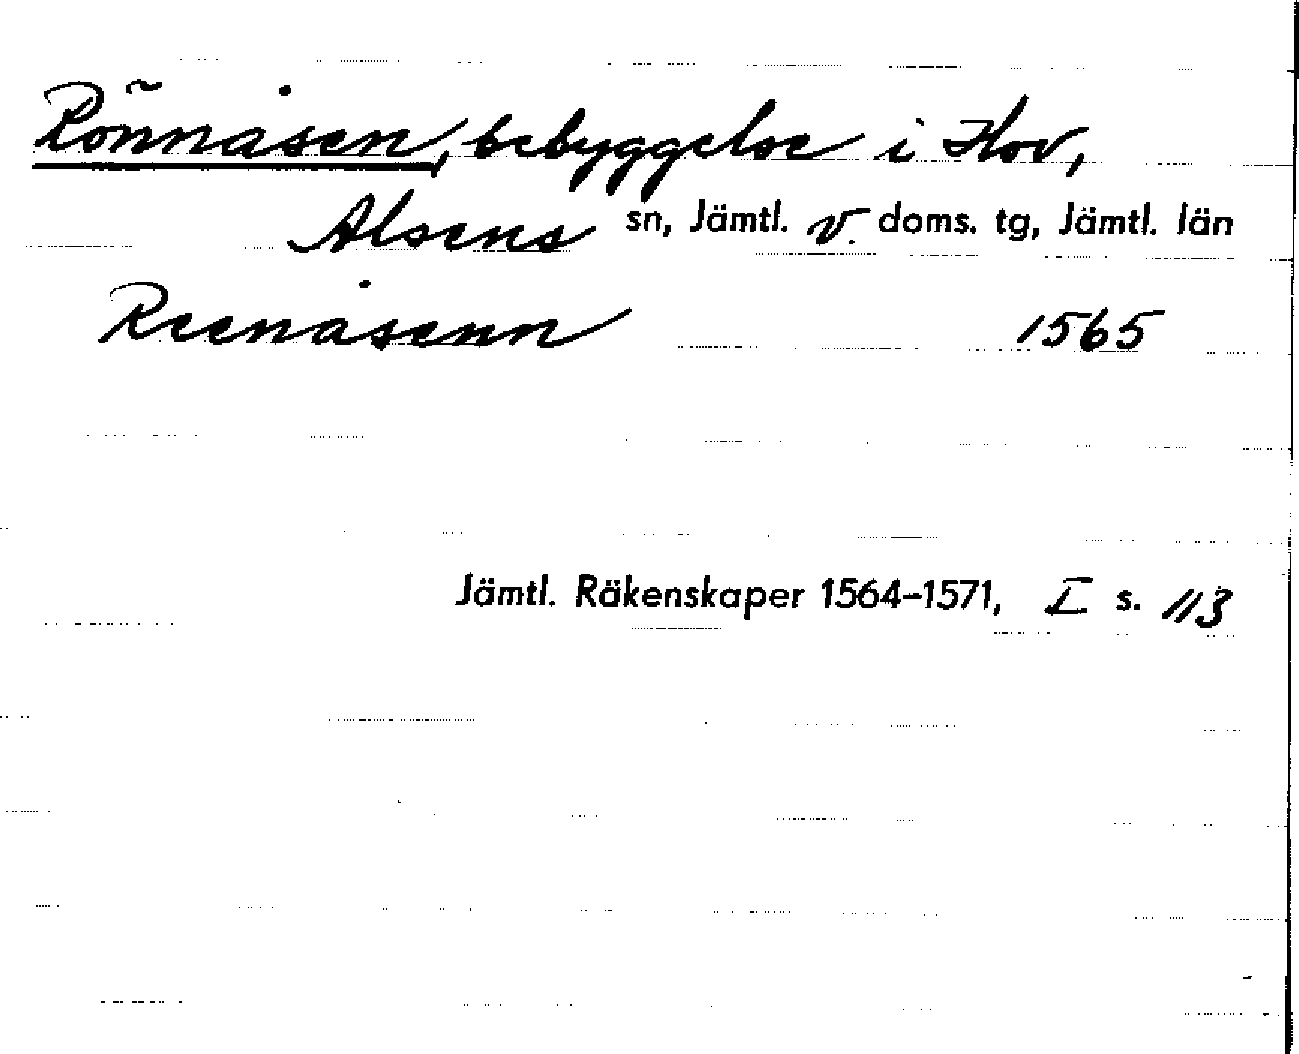 Rönnåsen, bebyggelse i Hov,
Alsens sn, Jämtl. v. doms. tg, Jämtl. län
Reenåsenn 1565
Jämtl. Räkenskaper 1564–1571, I s. 113